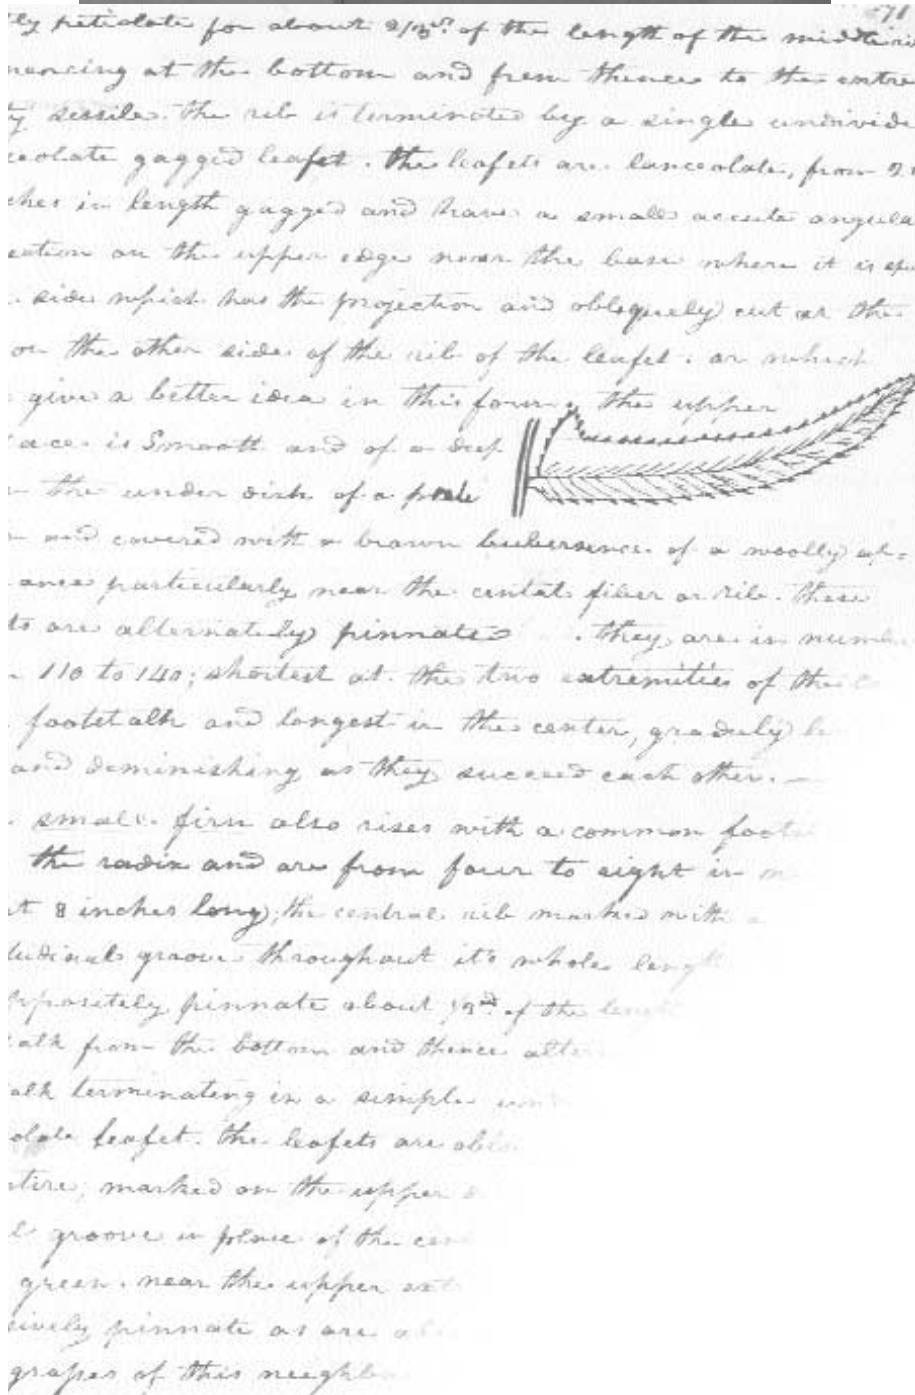 71
ly petiolate for about 2/3rds of the length of the middle ri
mencing at the bottom and from thence to the extre
ty sessile. the rib is terminated by a single undivide
ceolate gagged leafet. the leafets are lanceolate, from 2
ches in length gagged and have a small accute angula
ection on the upper edge near the base where it is
side which has the projection and obliquely cut at the
on the other side of the rib of the leafet. or which
give a better idea in this form. the upper
ace is Smooth and of a deep
the under disk of a pale
and covered with a brown bubersence of a woolly ap=
ance particularly near the cental fiber or rib. these
ts are alternately pinnate . they are in number
110 to 140; shortest at the two extremities of the c
footstalk and longest in the center, graduly l
and deminishing as they succeed each other. —
small firn also rises with a common foots
the radix and are from four to eight in n
t 8 inches long; the central rib marked with a
tudinal groove throughout it's whole length
ppositely pinnate about 1/3rd of the length
alk from the bottom and thence alter
alk terminating in a simple und
olate leafet. the leafets are oblo
tire, marked on the upper d
l groove in place of the cen
green. near the upper ext
sively pinnate as are a
grasses of this neeghbo